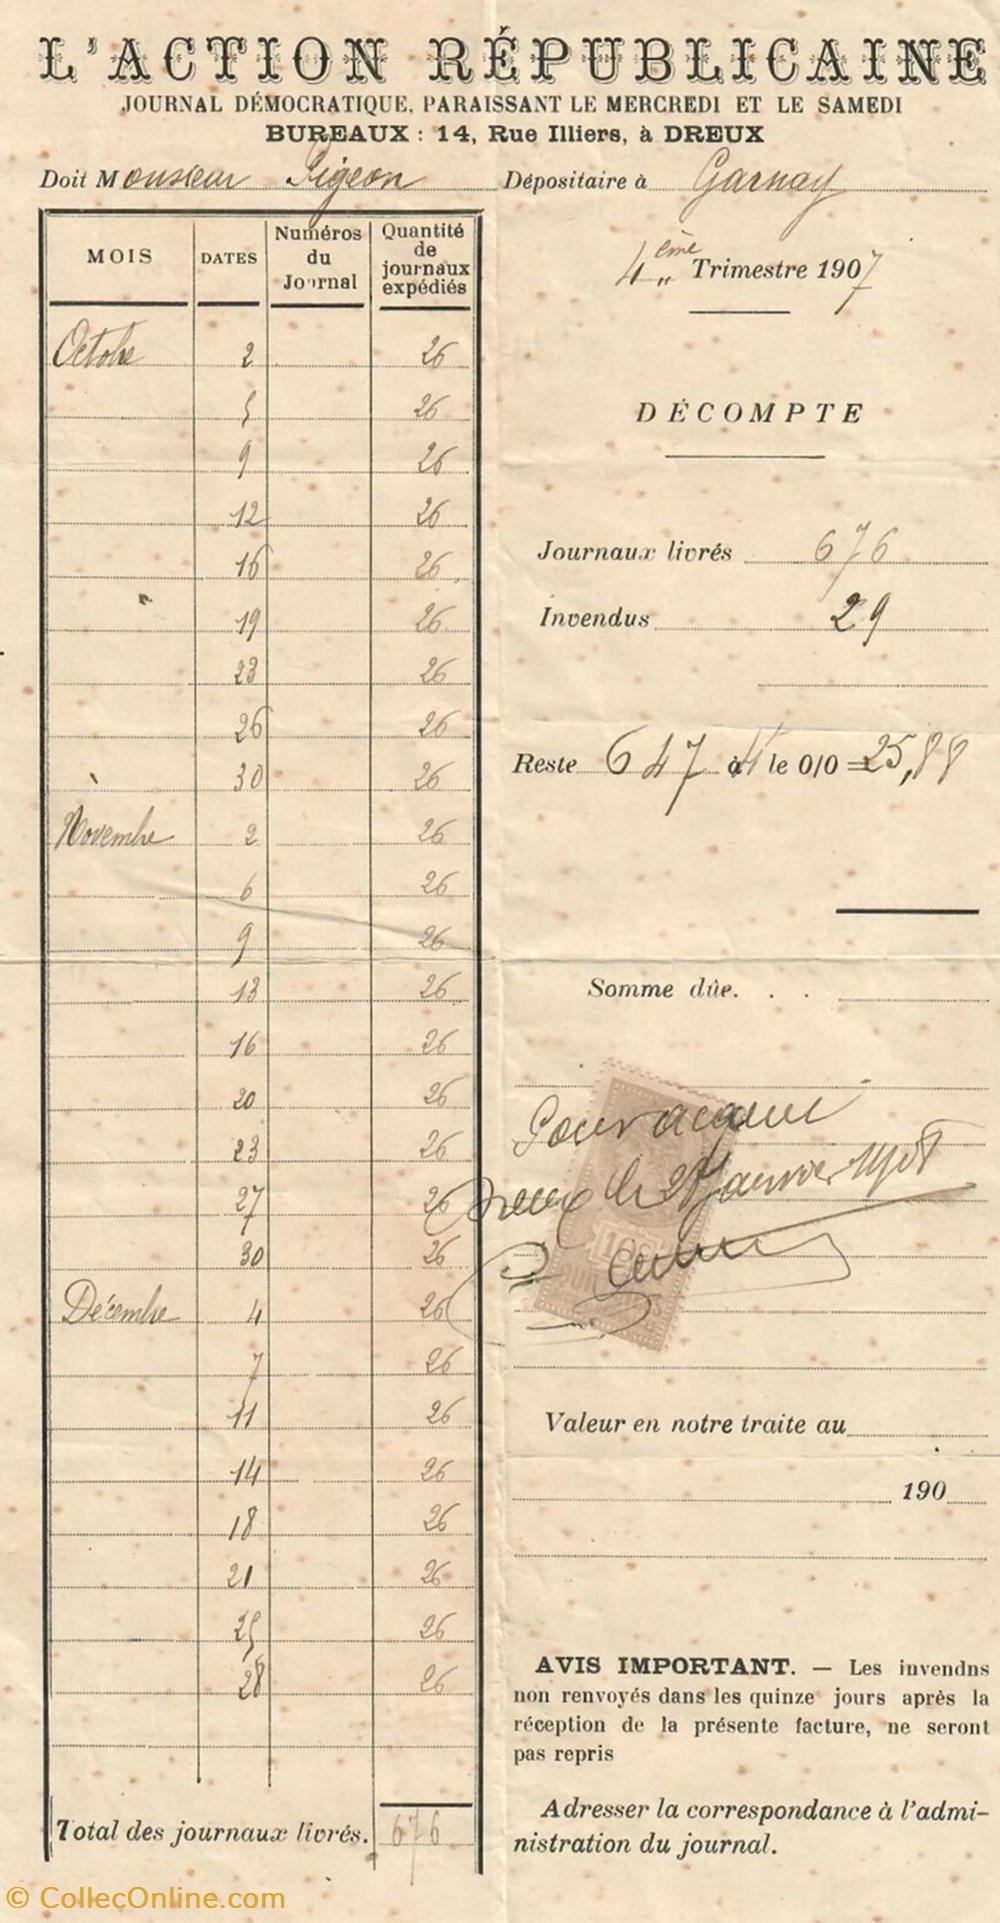 L'ACTION RÉPUBLICAINE
JOURNAL DÉMOCRATIQUE, PARAISSANT LE MERCREDI ET LE SAMEDI
BUREAUX : 14, Rue Illiers, à DREUX
Doit Monsieur Pigeon Dépositaire à Garnay
4ème Trimestre 1907
MOIS DATES Numéros du Journal Quantité de journaux expédiés
Octobre 2 26
5 26
9 26
12 26
16 26
19 26
23 26
26 26
30 26
Novembre 2 26
6 26
9 26
13 26
16 26
20 26
23 26
27 26
30 26
Décembre 4 26
7 26
11 26
14 26
18 26
21 26
25 26
28 26
Total des journaux livrés. 676
DÉCOMPTE
Journaux livrés 676
Invendus 29
Reste 647 à 4 le 0/0 = 25,88
Somme dûe. . .
Pour acquit
Dreux le Janvier 1908
Valeur en notre traite au
190
AVIS IMPORTANT. — Les invendns
non renvoyés dans les quinze jours après la
réception de la présente facture, ne seront
pas repris
Adresser la correspondance à l'admi-
nistration du journal.
© CollecOnline.com